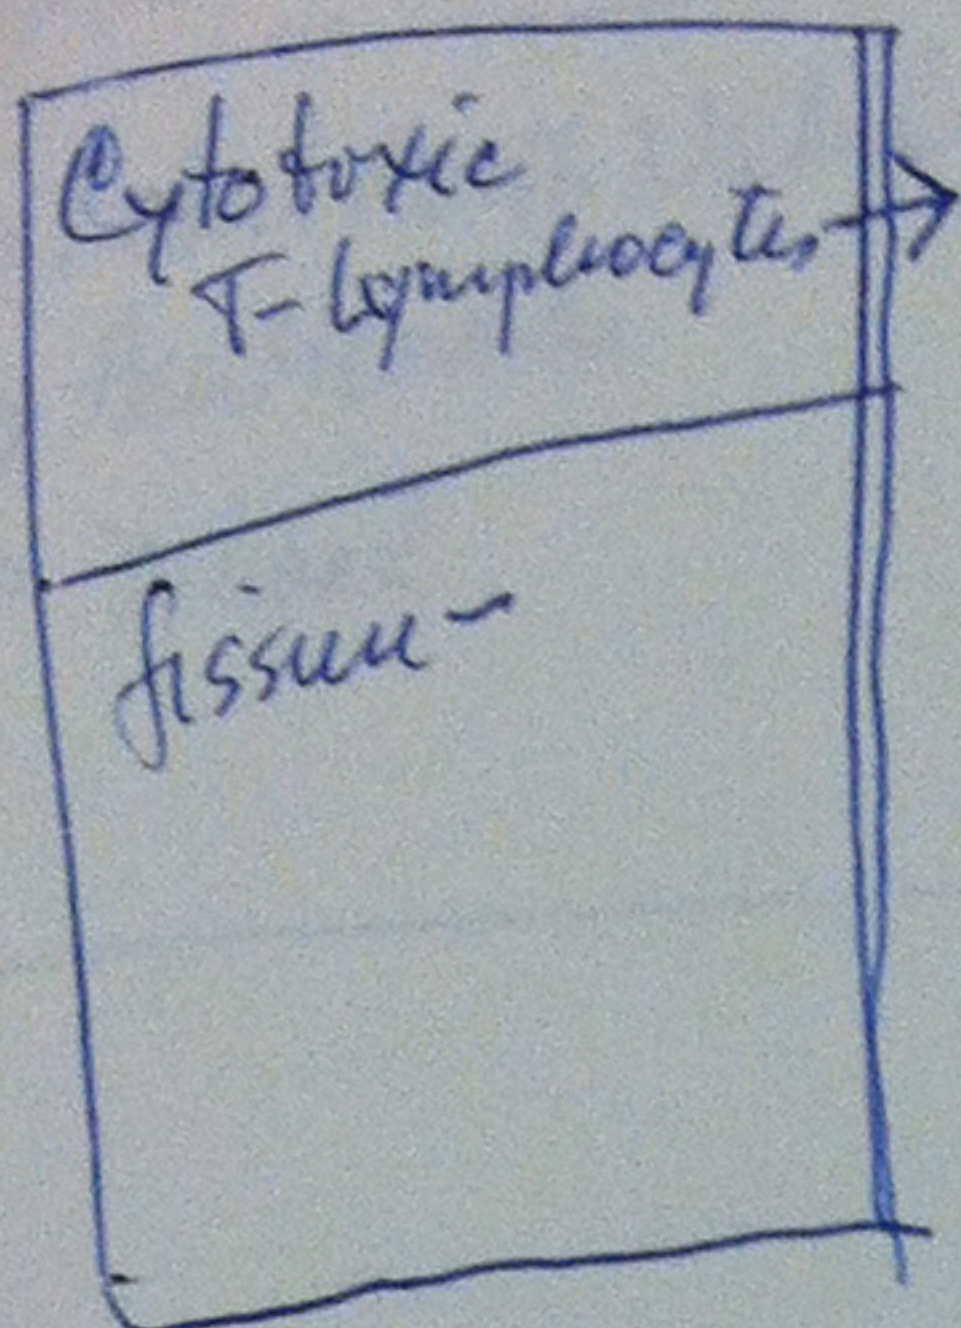 Cytotoxic
T-Lymphocytes →
fissure -